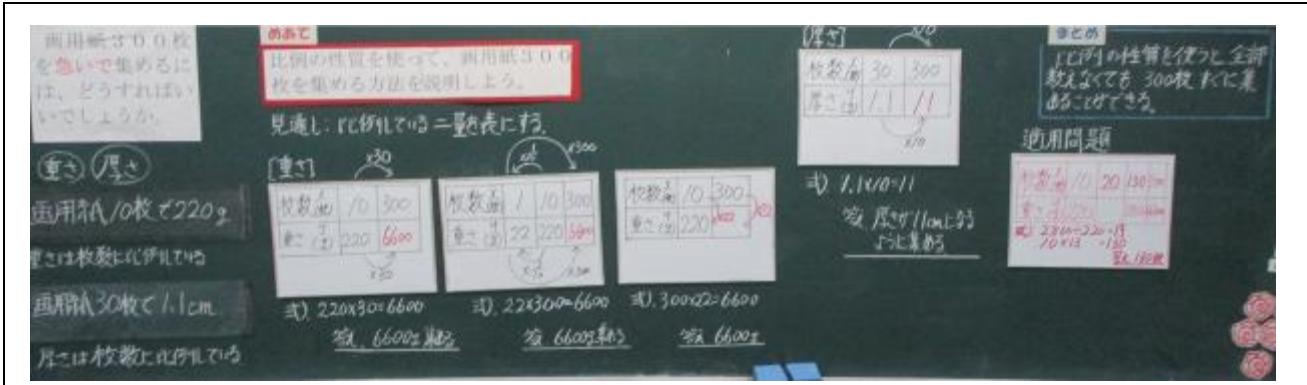 画用紙300枚
を急いで集めるに
は、どうすればい
いでしょうか。
重さ 厚さ
画用紙10枚で220g
重さは枚数に比例している
画用紙30枚で1.1cm
厚さは枚数に比例している
めあて
比例の性質を使って、画用紙300
枚を集める方法を説明しよう。
見通し:比例している二量を表にする。
[重さ]
×30
枚数 10 300
重さ 220 6600
×30
式) 220×30=6600
答え 6600g集める
×300
枚数 1 10 300
重さ 22 220 6600
式) 22×300=6600
答え 6600g集める
枚数 10 300
重さ 220
式) 300×22=6600
答え 6600g
[厚さ]
×10
枚数 30 300
厚さ 1.1 11
×10
式) 1.1×10=11
答え 厚さが11cmになる
ように集める
まとめ
比例の性質を使うと全部
数えなくても300枚すぐに集
めることができる。
適用問題
枚数 10 20 130
重さ 220
式) 2860÷220=13
10×13=130
答え 130枚